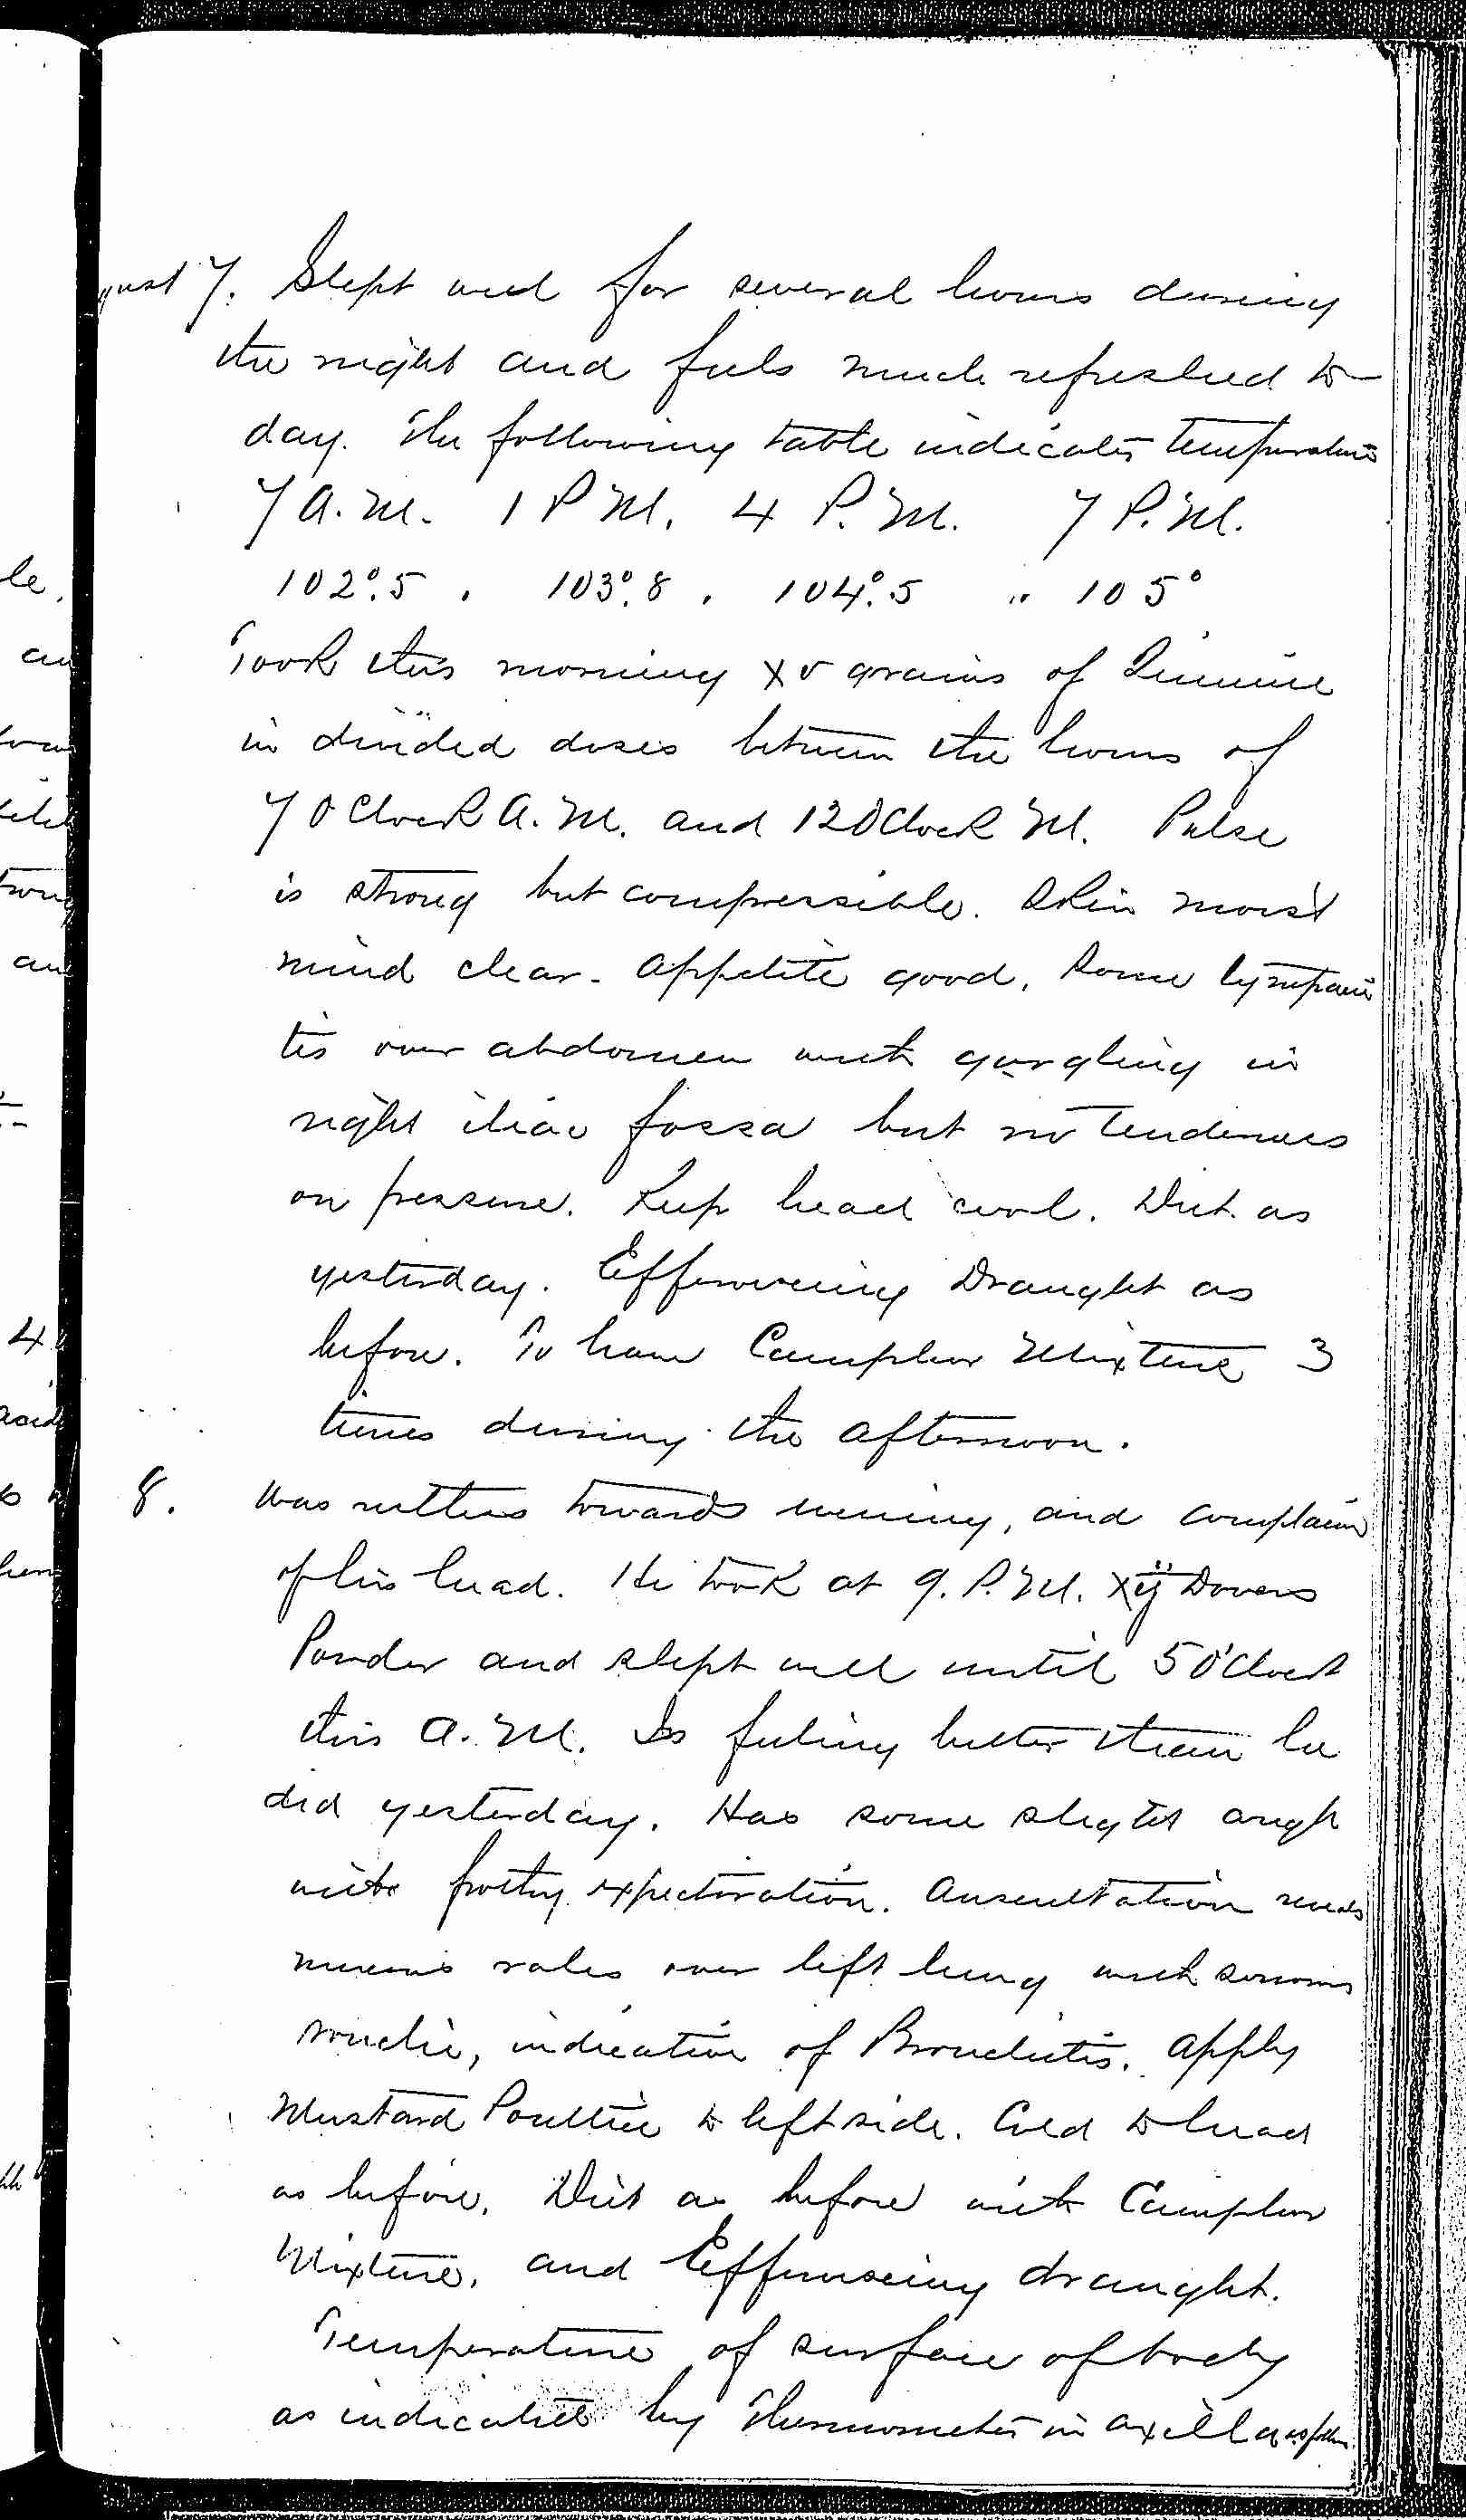 gust 7. Slept well for several hours during
the night and feels much refreshed to-
day. The following table indicates temperature
7 A.M. 1 P M. 4 P.M. 7 P.M.
102°.5 . 103°.8 . 104°.5 " 105°
Took this morning xv grains of Quinine
in divided doses between the hours of
7 O Clock A.M. and 12 OClock M. Pulse
is strong but compressible. Skin moist
mind clear. Appetite good. Some tympani
tis over abdomen with gurgling in
right iliac fossa but no tenderness
on pressure. Keep head cool. Diet as
yesterday. Effervescing Draught as
before. To have Camphor Mixture 3
times during the afternoon.
8. Was restless towards evening, and complains
of his head. He took at 9. P.M. xij Dovers
Powder and slept well until 5 O'Clock
this A.M. Is feeling better than he
did yesterday. Has some slight cough
with frothy expectoration. Auscultation reveals
mucous rales over left lung with sonorous
ronchi, indication of Bronchitis. Apply
Mustard Poultice to left side. Cold to head
as before. Diet as before with Camphor
Mixture, and Effervescing draught.
Temperature of surface of body
as indicated by Thermometer in axilla as follows